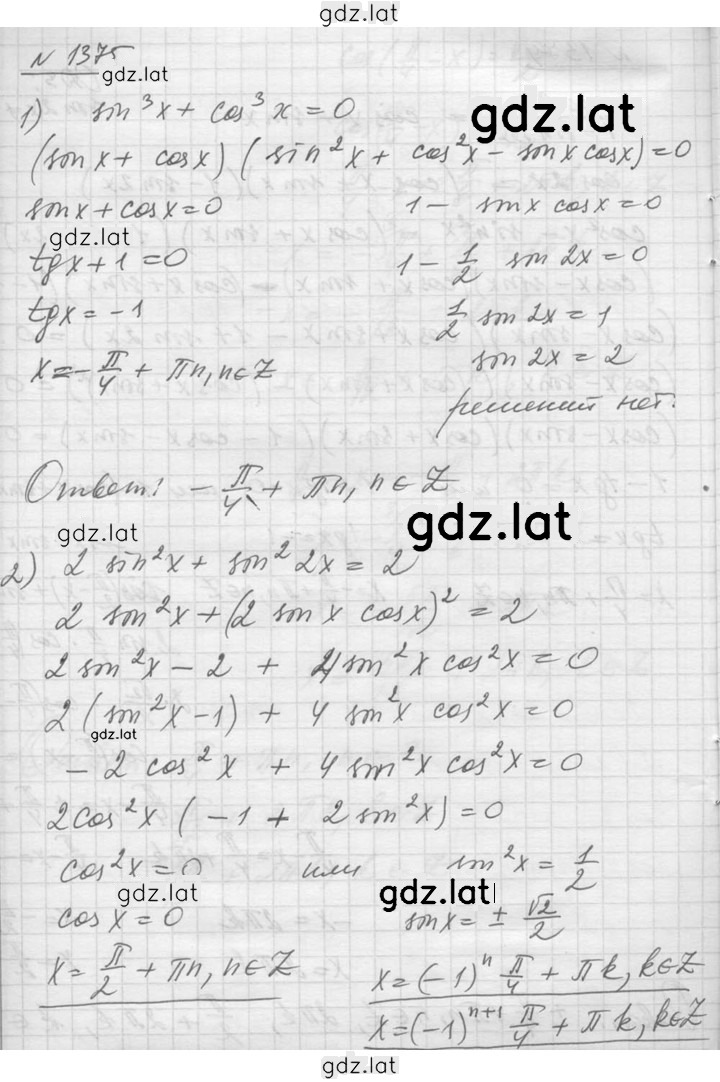 gdz.lat
N 1375
gdz.lat
1) sin³x + cos³x = 0
gdz.lat
(sin x + cos x) (sin²x + cos²x - sin x cos x) = 0
sin x + cos x = 0 1 - sin x cos x = 0
gdz.lat
tg x + 1 = 0 1 - 1/2 sin 2x = 0
tg x = -1 1/2 sin 2x = 1
x = -π/4 + πn, n∈Z sin 2x = 2
решений нет.
Ответ: -π/4 + πn, n∈Z
gdz.lat
gdz.lat
2) 2 sin²x + sin²2x = 2
2 sin²x + (2 sin x cos x)² = 2
2 sin²x - 2 + 4 sin²x cos²x = 0
2 (sin²x - 1) + 4 sin²x cos²x = 0
gdz.lat
- 2 cos²x + 4 sin²x cos²x = 0
2cos²x (-1 + 2 sin²x) = 0
cos²x = 0 или sin²x = 1/2
gdz.lat gdz.lat
cos x = 0 sin x = ± √2/2
x = π/2 + πn, n∈Z x = (-1)ⁿ π/4 + πk, k∈Z
x = (-1)ⁿ⁺¹ π/4 + πk, k∈Z
gdz.lat